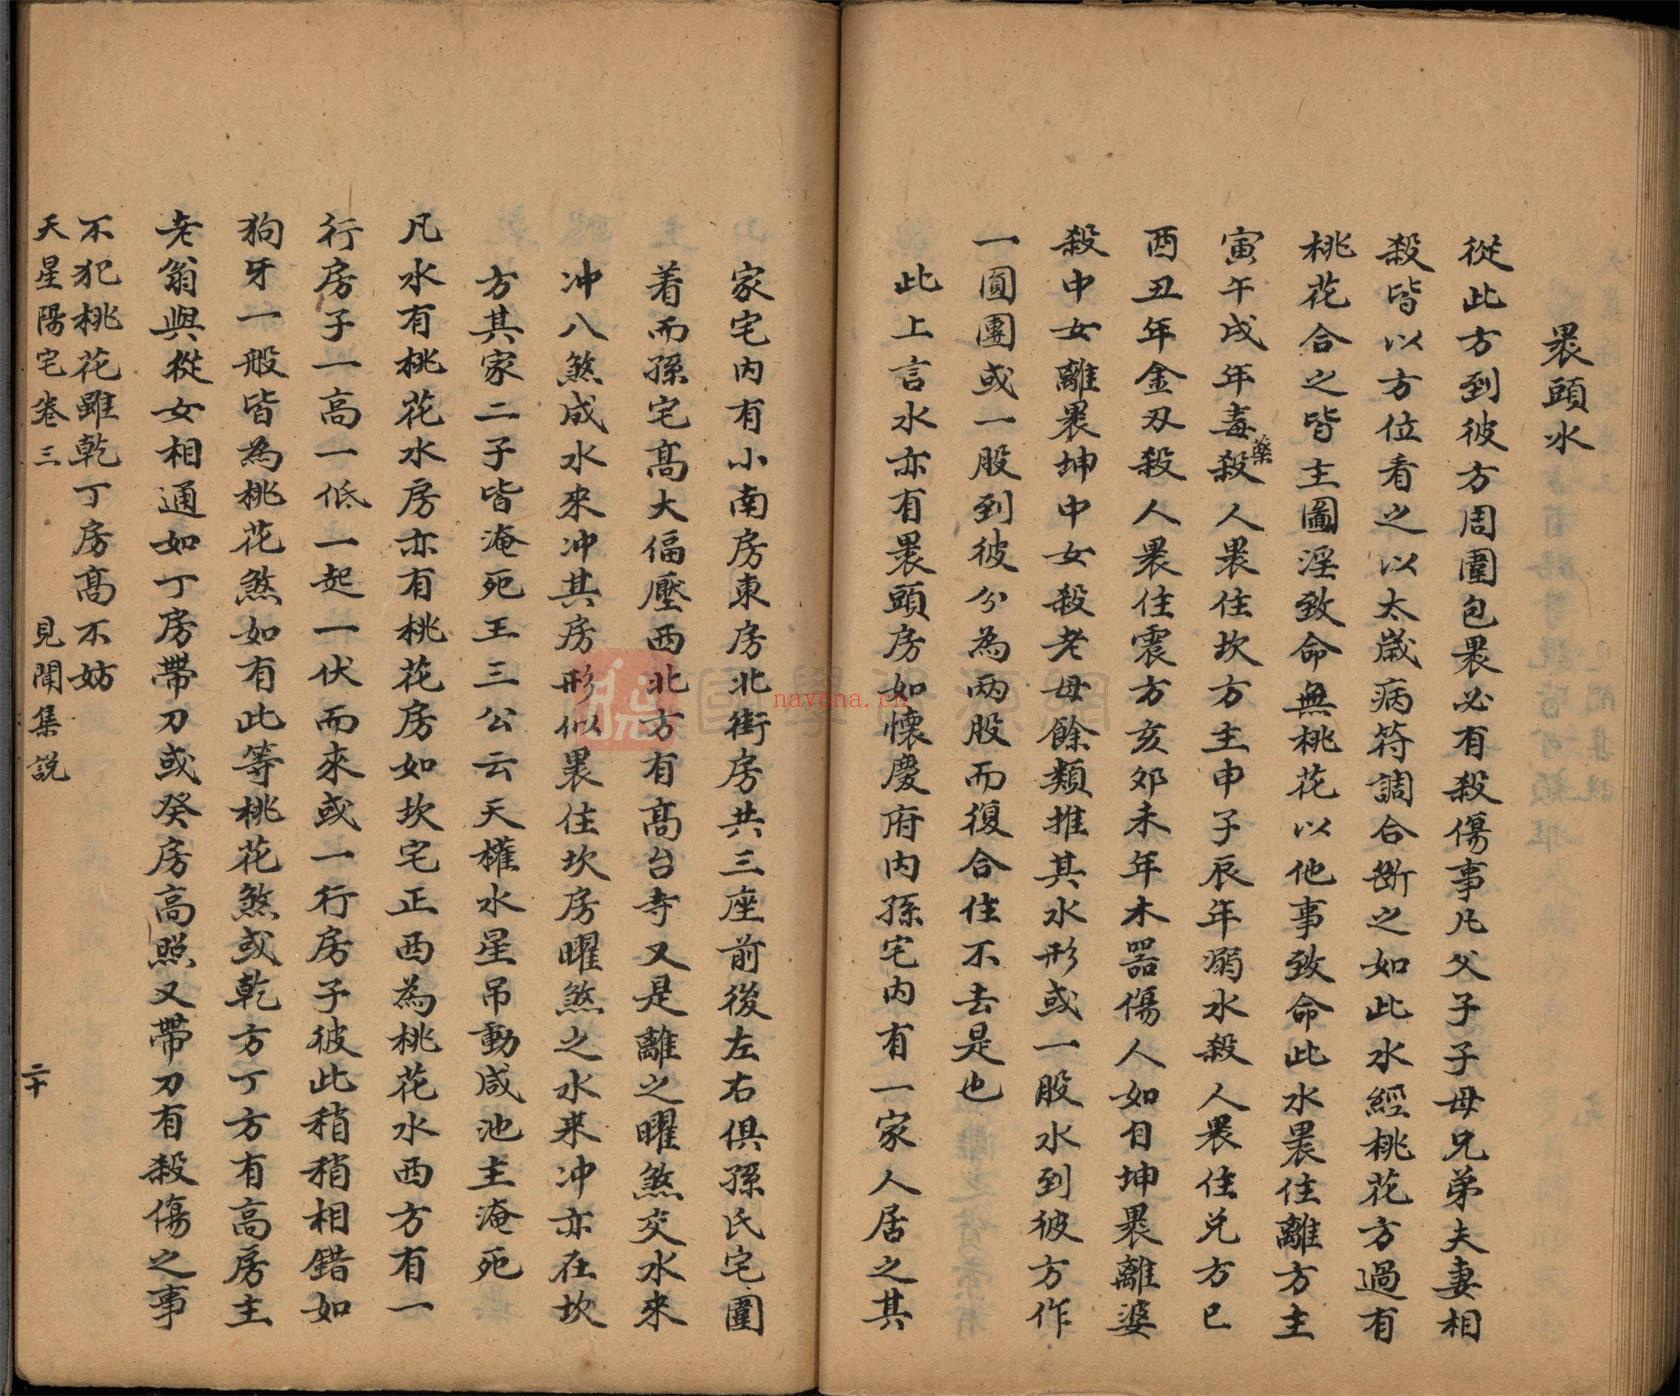 裹頭水
從此方到彼方周圍包裹必有殺傷事凡父子子母兄弟夫妻相
殺皆以方位看之以太歲病符調合斷之如此水經桃花方過有
桃花合之皆主圖淫致命無桃花以他事致命此水裹住離方主
寅午戌年毒藥殺人裹住坎方主申子辰年溺水殺人裹住兌方巳
酉丑年金刃殺人裹住震方亥卯未年木器傷人如自坤裹離婆
殺中女離裹坤中女殺老母餘類推其水形或一股水到彼方作
一圓團或一股到彼分為兩股而復合住不去是也
此上言水亦有裹頭房如懷慶府內孫宅內有一家人居之其
家宅內有小南房東房北街房共三座前後左右俱孫氏宅圍
着而孫宅高大偪壓西北方有高台寺又是離之曜煞交水來
冲八煞成水來冲其房形似裹住坎房曜煞之水来冲亦在坎
方其家二子皆淹死王三公云天權水星吊動咸池主淹死
凡水有桃花水房亦有桃花房如坎宅正西為桃花水西方有一
行房子一高一低一起一伏而來或一行房子彼此稍稍相錯如
狗牙一般皆為桃花煞如有此等桃花煞或乾方丁方有高房主
老翁與從女相通如丁房帶刀或癸房高照又帶刀有殺傷之事
不犯桃花雖乾丁房高不妨
天星陽宅卷三 見聞集說 二十
國學
nayona.cn